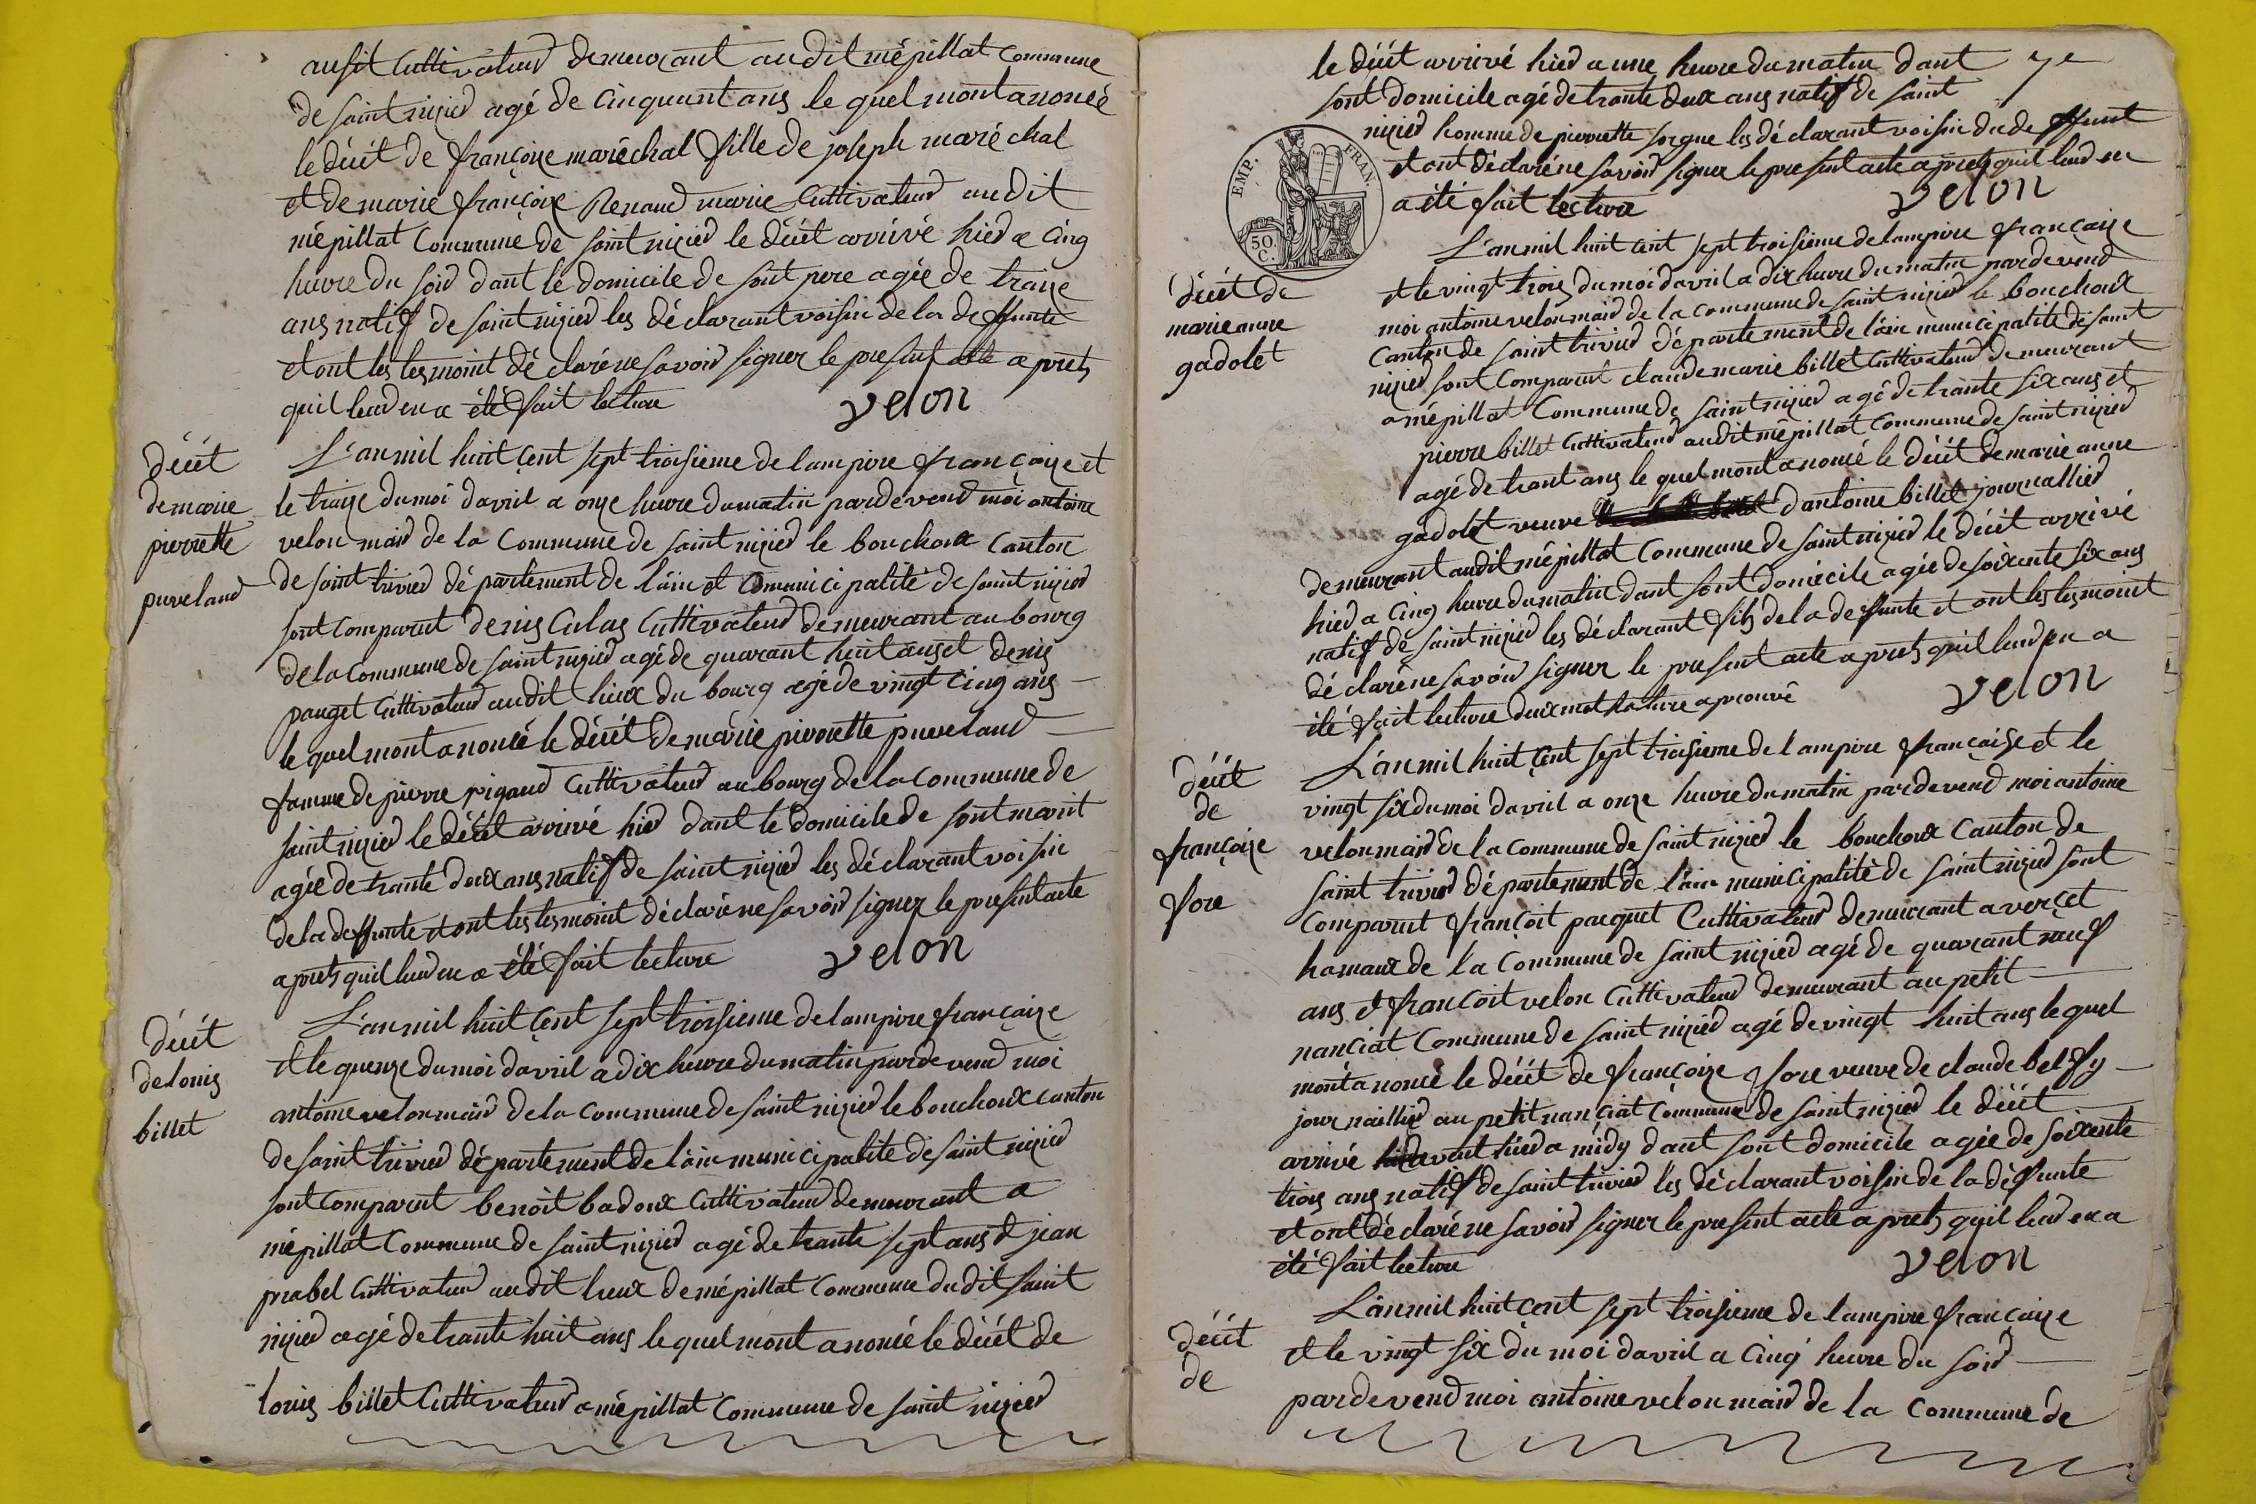 ausit Cultivateur demeurant audit mépillat Commune
de saint nizier agé de Cinquant ans le quel mont anoncé
le décét de françoize maréchal fille de joseph maréchal
et de marie françoize Renaud marie Cultivateur audit
mépillat Commune de saint nizier le décét arrivé hier a Cinq
heure du soir dant le domicile de sont pere agée de traize
ans natif de saint nizier les déclarant voisin de la deffunte
et ont les tesmoint déclaré ne savoir signer le present acte aprets
quil leur en a été fait lecture velon
décét
de marie
pierrette
puveland
L'an mil huit çent sept troisieme de lampire françaize et
le traize du moi davril a onze heure du matin pardevend moi antoine
velon mair de la Commune de saint nizier le bouchoux Canton
de saint trivier département de lain et Comunicipalité de saint nizier
sont Comparut denis Culas Cultivateur demeurant au bourg
de la Commune de saint nizier agé de quarant huit ans et denis
pauget Cultivateur audit lieux du bourg agé de vingt Cinq ans
le quel mont anoncé le décét de marie pierrette puveland
famme de pierre rigaud Cultivateur au bourg de la Commune de
saint nizier le décét arrivé hier dant le domicile de sont marit
agée de trante deux ans natif de saint nizier les déclarant voisin
de la deffunte et ont les tesmoint déclaré ne savoir signer le present acte
aprets quil leur en a été fait lecture velon
décét
de louis
billet
L'an mil huit çent sept troisieme de lampire françaize
et le quenze du moi davril a dix heure du matin pardevend moi
antoine velon mair de la Commune de saint nizier le bouchoux canton
de saint trivier département de lain municipalité de saint nizier
sont Comparut benoit badoux Cultivateur demeurant a
mépillat Commune de saint nizier agé de trante sept ans et jean
prabel Cultivateur audit lieux de mépillat Commune dudit saint
nizier agé de trante huit ans le quel mont anoncé le décét de
louis billet Cultivateur a mépillat Commune de saint nizier
le décét arrivé hier a une heure du matin dant 7e
sont domicile agé de trante deux ans natif de saint
nizier homme de pierrette sorgue les déclarant voisin du deffunt
et ont déclaré ne savoir signer le present acte aprets quil leur en
a été fait lecture velon
EMP. FRAN.
50.
C.
décét de
marie anne
gadolet
L'an mil huit çent sept troisieme de lampire françaize
et le vingt trois du moi davril a dix heure du matin pardevend
moi antoine velon mair de la Commune de saint nizier le bouchoux
Canton de saint trivier département de lain municipalité de saint
nizier sont Comparut claude marie billet Cultivateur demeurant
a mépillat Commune de saint nizier agé de trante six ans et
pierre billet Cultivateur audit mépillat Commune de saint nizier
agé de trant ans le quel mont anoncé le décét de marie anne
gadolet veuve dantoine billet journallier
demeurant audit mépillat Commune de saint nizier le décét arrivé
hier a Cinq heure du matin dant sont domicile agée de soixente six ans
natif de saint nizier les déclarant fils de la defunte et ont les tesmoint
déclaré ne savoir signer le present acte aprets quil leur en a
été fait lecture deux mot rature aprouvé velon
décét
de
françoize
fore
L'an mil huit çent sept troisieme de lampire françaize et le
vingt six du moi davril a onze heure du matin pardevend moi antoine
velon mair de la Commune de saint nizier le bouchoux Canton de
saint trivier département de lain municipalité de saint nizier sont
Comparut françoit pacquet Cultivateur demeurant a verçet
hamaux de la Commune de saint nizier agé de quarant neuf
ans et françoit velon Cultivateur demeurant au petit
nanciat Commune de saint nizier agé de vingt huit ans le quel
mont anoncé le décét de françoize fore veuve de claude belffy
journaillier au petit nanciat Commune de saint nizier le décét
arrivé avent hier a midy dant sont domicile agée de soixente
trois ans natif de saint trivier les déclarant voisin de la defunte
et ont déclaré ne savoir signer le present acte aprets quil leur en a
été fait lecture velon
décét
de
L'an mil huit çent sept troisieme de lampire françaize
et le vingt six du moi davril a Cinq heure du soir
pardevend moi antoine velon mair de la Commune de